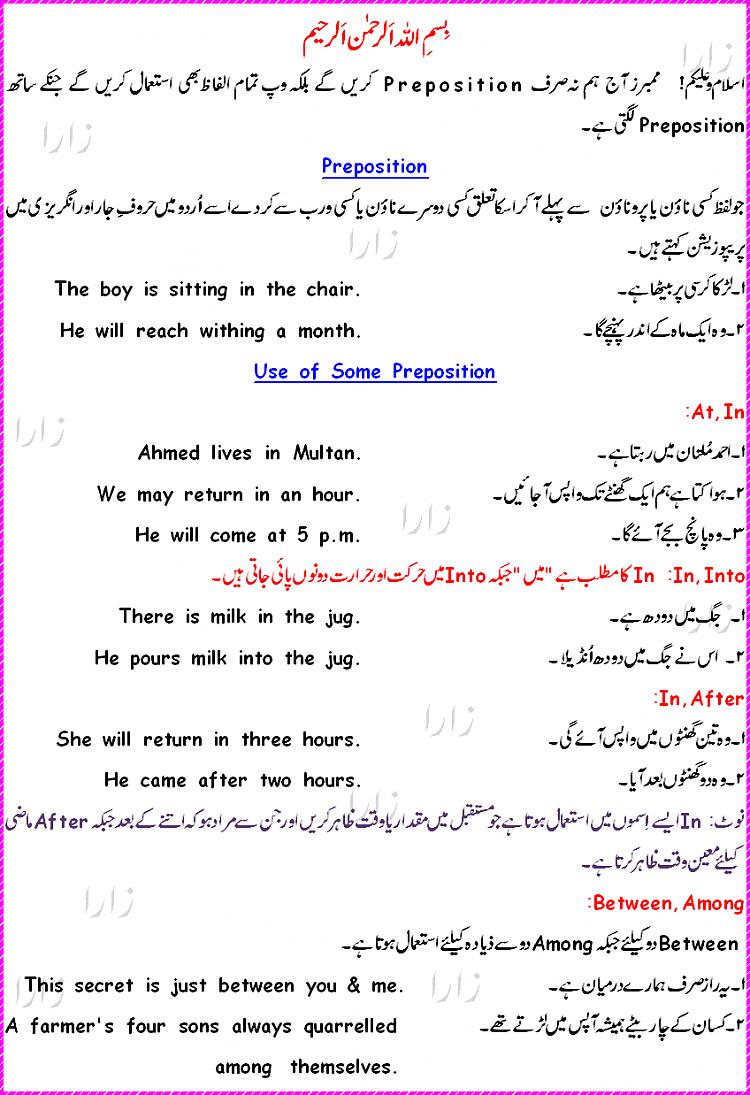 بِسمِ اللہ الرحمٰن الرحیم
اسلام و علیکم! ممبرز آج ہم نہ صرف Preposition کریں گے بلکہ وہ تمام الفاظ بھی استعمال کریں گے جنکے ساتھ
Preposition لگتی ہے۔
Preposition
جو لفظ کسی ناؤن یا پروناؤن سے پہلے آ کر اسکا تعلق کسی دوسرے ناؤن یا کسی ورب سے کر دے اسے اُردو میں حروفِ جار اور انگریزی میں
پریپوزیشن کہتے ہیں۔
۱۔لڑکا کرسی پر بیٹھا ہے۔ The boy is sitting in the chair.
۲۔وہ ایک ماہ کے اندر پہنچے گا۔ He will reach withing a month.
Use of Some Preposition
At, In:
۱۔احمد مُلتان میں رہتا ہے۔ Ahmed lives in Multan.
۲۔ہو سکتا ہے ہم ایک گھنٹے تک واپس آ جائیں۔ We may return in an hour.
۳۔وہ پانچ بجے آئے گا۔ He will come at 5 p.m.
In, Into: In کا مطلب ہے "میں" جبکہ Into میں حرکت اور حرارت دونوں پائی جاتی ہیں۔
۱۔ جگ میں دودھ ہے۔ There is milk in the jug.
۲۔ اس نے جگ میں دودھ اُنڈیلا۔ He pours milk into the jug.
In, After:
۱۔وہ تین گھنٹوں میں واپس آئے گی۔ She will return in three hours.
۲۔وہ دو گھنٹوں بعد آیا۔ He came after two hours.
نوٹ: In ایسے اِسموں میں استعمال ہوتا ہے جو مستقبل میں مقدار یا وقت ظاہر کریں اور جن سے مراد ہو کہ اتنے کے بعد جبکہ After ماضی
کیلئے معین وقت ظاہر کرتا ہے۔
Between, Among:
Between دو کیلئے جبکہ Among دو سے ذیادہ کیلئے استعمال ہوتا ہے۔
۱۔یہ راز صرف ہمارے درمیان ہے۔ This secret is just between you & me.
۲۔کسان کے چار بیٹے ہمیشہ آپس میں لڑتے تھے۔ A farmer's four sons always quarrelled
among themselves.
زارا
زارا
زارا
زارا
زارا
زارا
زارا
زارا
زارا
زارا
زارا